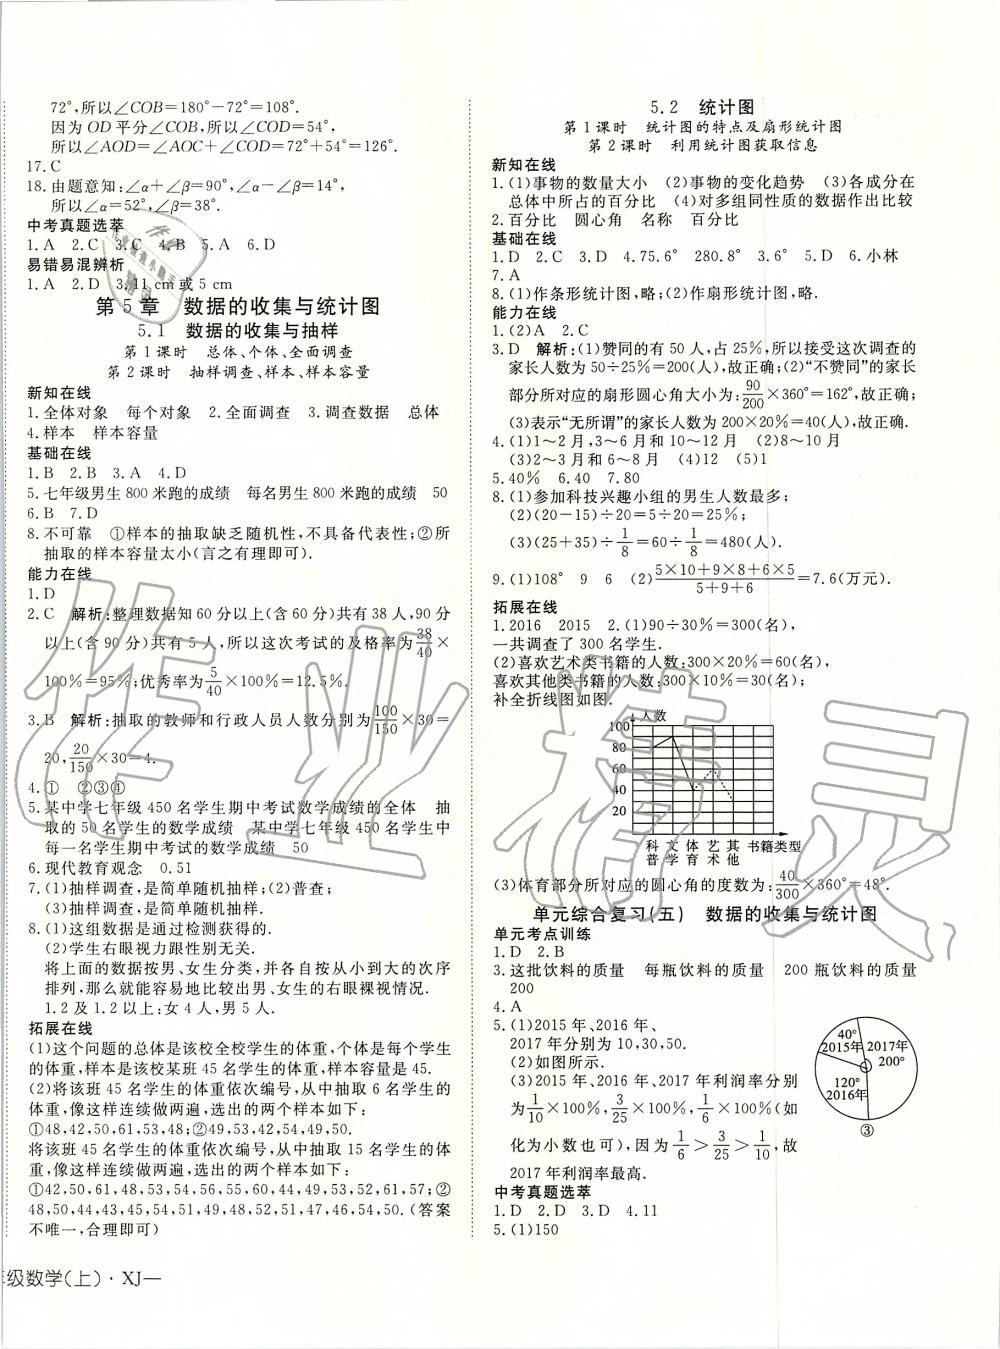 72°,所以∠COB=180°-72°=108°.
因为OD平分∠COB,所以∠COD=54°,
所以∠AOD=∠AOC+∠COD=72°+54°=126°.
17.C
18.由题意知:∠α+∠β=90°,∠α-∠β=14°,
所以∠α=52°,∠β=38°.
中考真题选萃
1.A 2.C 3.C 4.B 5.A 6.D
易错易混辨析
1.A 2.D 3.11 cm或5 cm
第5章 数据的收集与统计图
5.1 数据的收集与抽样
第1课时 总体、个体、全面调查
第2课时 抽样调查、样本、样本容量
新知在线
1.全体对象 每个对象 2.全面调查 3.调查数据 总体
4.样本 样本容量
基础在线
1.B 2.B 3.A 4.D
5.七年级男生800米跑的成绩 每名男生800米跑的成绩 50
6.B 7.D
8.不可靠 ①样本的抽取缺乏随机性,不具备代表性;②所
抽取的样本容量太小(言之有理即可).
能力在线
1.D
2.C 解析:整理数据知60分以上(含60分)共有38人,90分
以上(含90分)共有5人,所以这次考试的及格率为38/40×
100%=95%;优秀率为5/40×100%=12.5%.
3.B 解析:抽取的教师和行政人员人数分别为100/150×30=
20,20/150×30=4.
4.① ②③④
5.某中学七年级450名学生期中考试数学成绩的全体 抽
取的50名学生的数学成绩 某中学七年级450名学生中
每一名学生期中考试的数学成绩 50
6.现代教育观念 0.51
7.(1)抽样调查,是简单随机抽样;(2)普查;
(3)抽样调查,是简单随机抽样.
8.(1)这组数据是通过检测获得的.
(2)学生右眼视力跟性别无关.
将上面的数据按男、女生分类,并各自按从小到大的次序
排列,那么就能容易地比较出男、女生的右眼裸视情况.
1.2及1.2以上:女4人,男5人.
拓展在线
(1)这个问题的总体是该校全校学生的体重,个体是每个学生
的体重,样本是该校某班45名学生的体重,样本容量是45.
(2)将该班45名学生的体重依次编号,从中抽取6名学生的
体重,像这样连续做两遍,选出的两个样本如下:
①48,42,50,61,53,48;②49,53,42,54,49,50.
将该班45名学生的体重依次编号,从中抽取15名学生的体
重,像这样连续做两遍,选出的两个样本如下:
①42,50,61,48,53,54,56,55,60,64,50,49,52,61,57;②
48,50,44,43,45,54,51,49,48,52,51,47,46,54,50.(答案
不唯一,合理即可)
年级数学(上)·XJ—
5.2 统计图
第1课时 统计图的特点及扇形统计图
第2课时 利用统计图获取信息
新知在线
1.(1)事物的数量大小 (2)事物的变化趋势 (3)各成分在
总体中所占的百分比 (4)对多组同性质的数据作出比较
2.百分比 圆心角 名称 百分比
基础在线
1.D 2.C 3.D 4.75.6° 280.8° 3.6° 5.D 6.小林
7.A
8.(1)作条形统计图,略;(2)作扇形统计图,略.
能力在线
1.(2)A 2.C
3.D 解析:(1)赞同的有50人,占25%,所以接受这次调查的
家长人数为50÷25%=200(人),故正确;(2)“不赞同”的家长
部分所对应的扇形圆心角大小为:90/200×360°=162°,故正确;
(3)表示“无所谓”的家长人数为200×20%=40(人),故正确.
4.(1)1~2月,3~6月和10~12月 (2)8~10月
(3)2~3月和6~8月 (4)12 (5)1
5.40% 6.40 7.80
8.(1)参加科技兴趣小组的男生人数最多;
(2)(20-15)÷20=5÷20=25%;
(3)(25+35)÷1/8=60÷1/8=480(人).
9.(1)108° 9 6 (2)(5×10+9×8+6×5)/(5+9+6)=7.6(万元).
拓展在线
1.2016 2015 2.(1)90÷30%=300(名),
一共调查了300名学生.
(2)喜欢艺术类书籍的人数:300×20%=60(名),
喜欢其他类书籍的人数:300×10%=30(名).
补全折线图如图.
人数
100
80
60
40
20
科普 文学 体育 艺术 其他 书籍类型
(3)体育部分所对应的圆心角的度数为:40/300×360°=48°.
单元综合复习(五) 数据的收集与统计图
单元考点训练
1.D 2.B
3.这批饮料的质量 每瓶饮料的质量 200瓶饮料的质量
200
4.A
5.(1)2015年、2016年、
2017年分别为10,30,50.
(2)如图所示.
(3)2015年、2016年、2017年利润率分别
为1/10×100%,3/25×100%,1/6×100%(如
化为小数也可),因为1/6>3/25>1/10,故
2017年利润率最高.
40°
2015年
2017年
200°
120°
2016年
③
中考真题选萃
1.D 2.D 3.D 4.11
5.(1)150
作业精灵